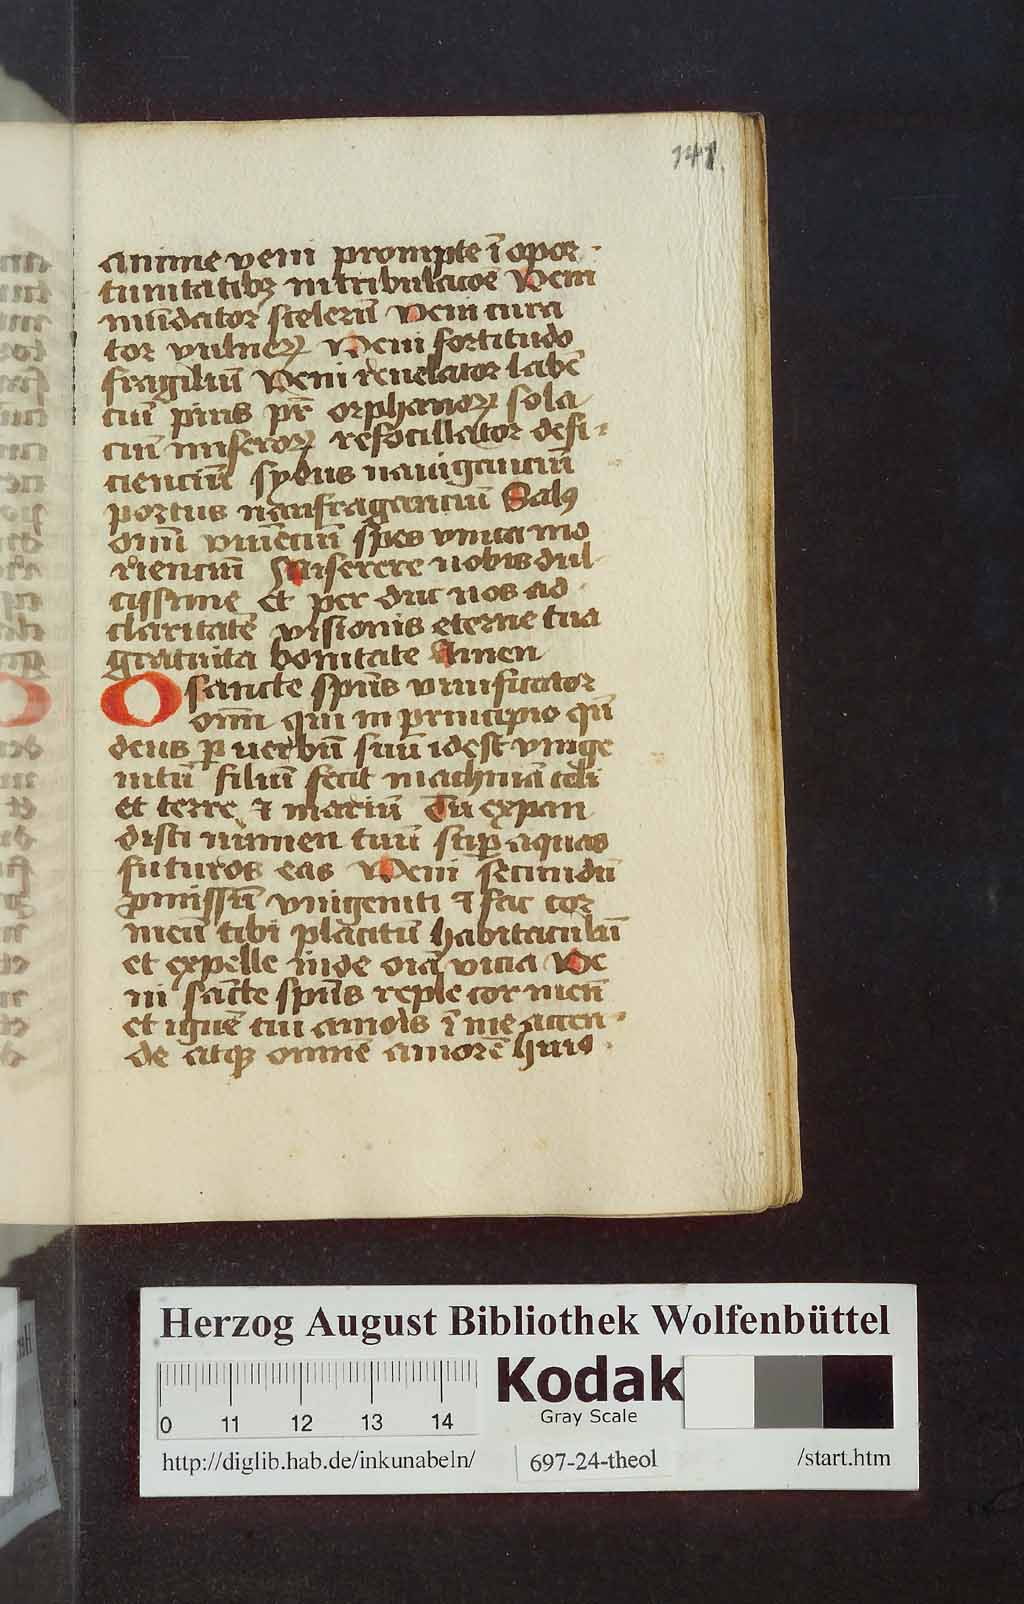 141
anime veni prompte ī opor-
tunitatibꝫ ī tribulacōe Veni
mūdator scelerū Veni cura
tor vulneꝝ Veni fortitudo
fragiliū Veni reuelator labē
ciū pius pr̄ orphanoꝝ sola
ciū miseroꝝ refocillator defi-
cienciū sydus nauiganciū
portus naufraganciū Salꝰ
om̄i viuēciū spes vnica mo
rienciū Miserere nobis dul
cissime et per duc nos ad
claritatē visionis eterne tua
gratuita bonitate Amen
O sancte spūs viuificator
om̄i qui in principio qn̄
deus ꝑ verbū suū idest vnige
nitū filiū fecit machinā celi
et terre ⁊ mariū Tu expan
disti numen tuū suꝑ aquas
futuros eas Veni secundū
ꝓmissū vnigeniti ⁊ fac cor
meū tibi placitū habitaculū
et expelle inde oīa vicia Ve
ni sācte spūs reple cor meū
et ignē tui amoīs ī me accen-
de atqꝫ omnē amorē huiꝰ
Herzog August Bibliothek Wolfenbüttel
0 11 12 13 14
Kodak
Gray Scale
http://diglib.hab.de/inkunabeln/ 697-24-theol /start.htm